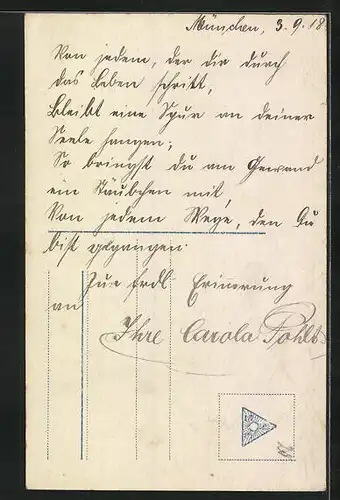 München, 3.9.18.
Von jedem, der dir durch
das Leben schritt,
Bleibt eine Spur an deiner
Seele hangen;
So bringst du am Gewand
ein Stäubchen mit,
Von jedem Wege, den Du
bist gegangen.
Zur frdl. Erinnerung
an
Ihre Carola Pohls